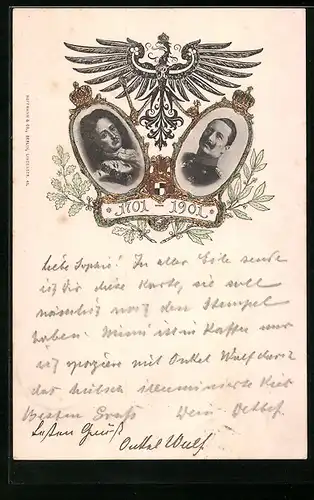 1701 – 1901
Liebe Sophie! In aller Eile sende
ich Dir diese Karte, sie soll
noch den Stempel
haben. Mimi ist in Kassel nur
ich spaziere mit Onkel Wulf durch
das hübsch illuminierte Kiel
Besten Gruß Dein Detlef.
Besten Gruß
Onkel Wulf